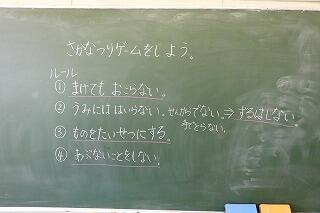 さかなつりゲームをしよう。
ルール
① まけても おこらない。
② うみには はいらない。せんからでない。⇒ ずるはしない
手でとらない。
③ ものをたいせつにする。
④ あぶないことをしない。